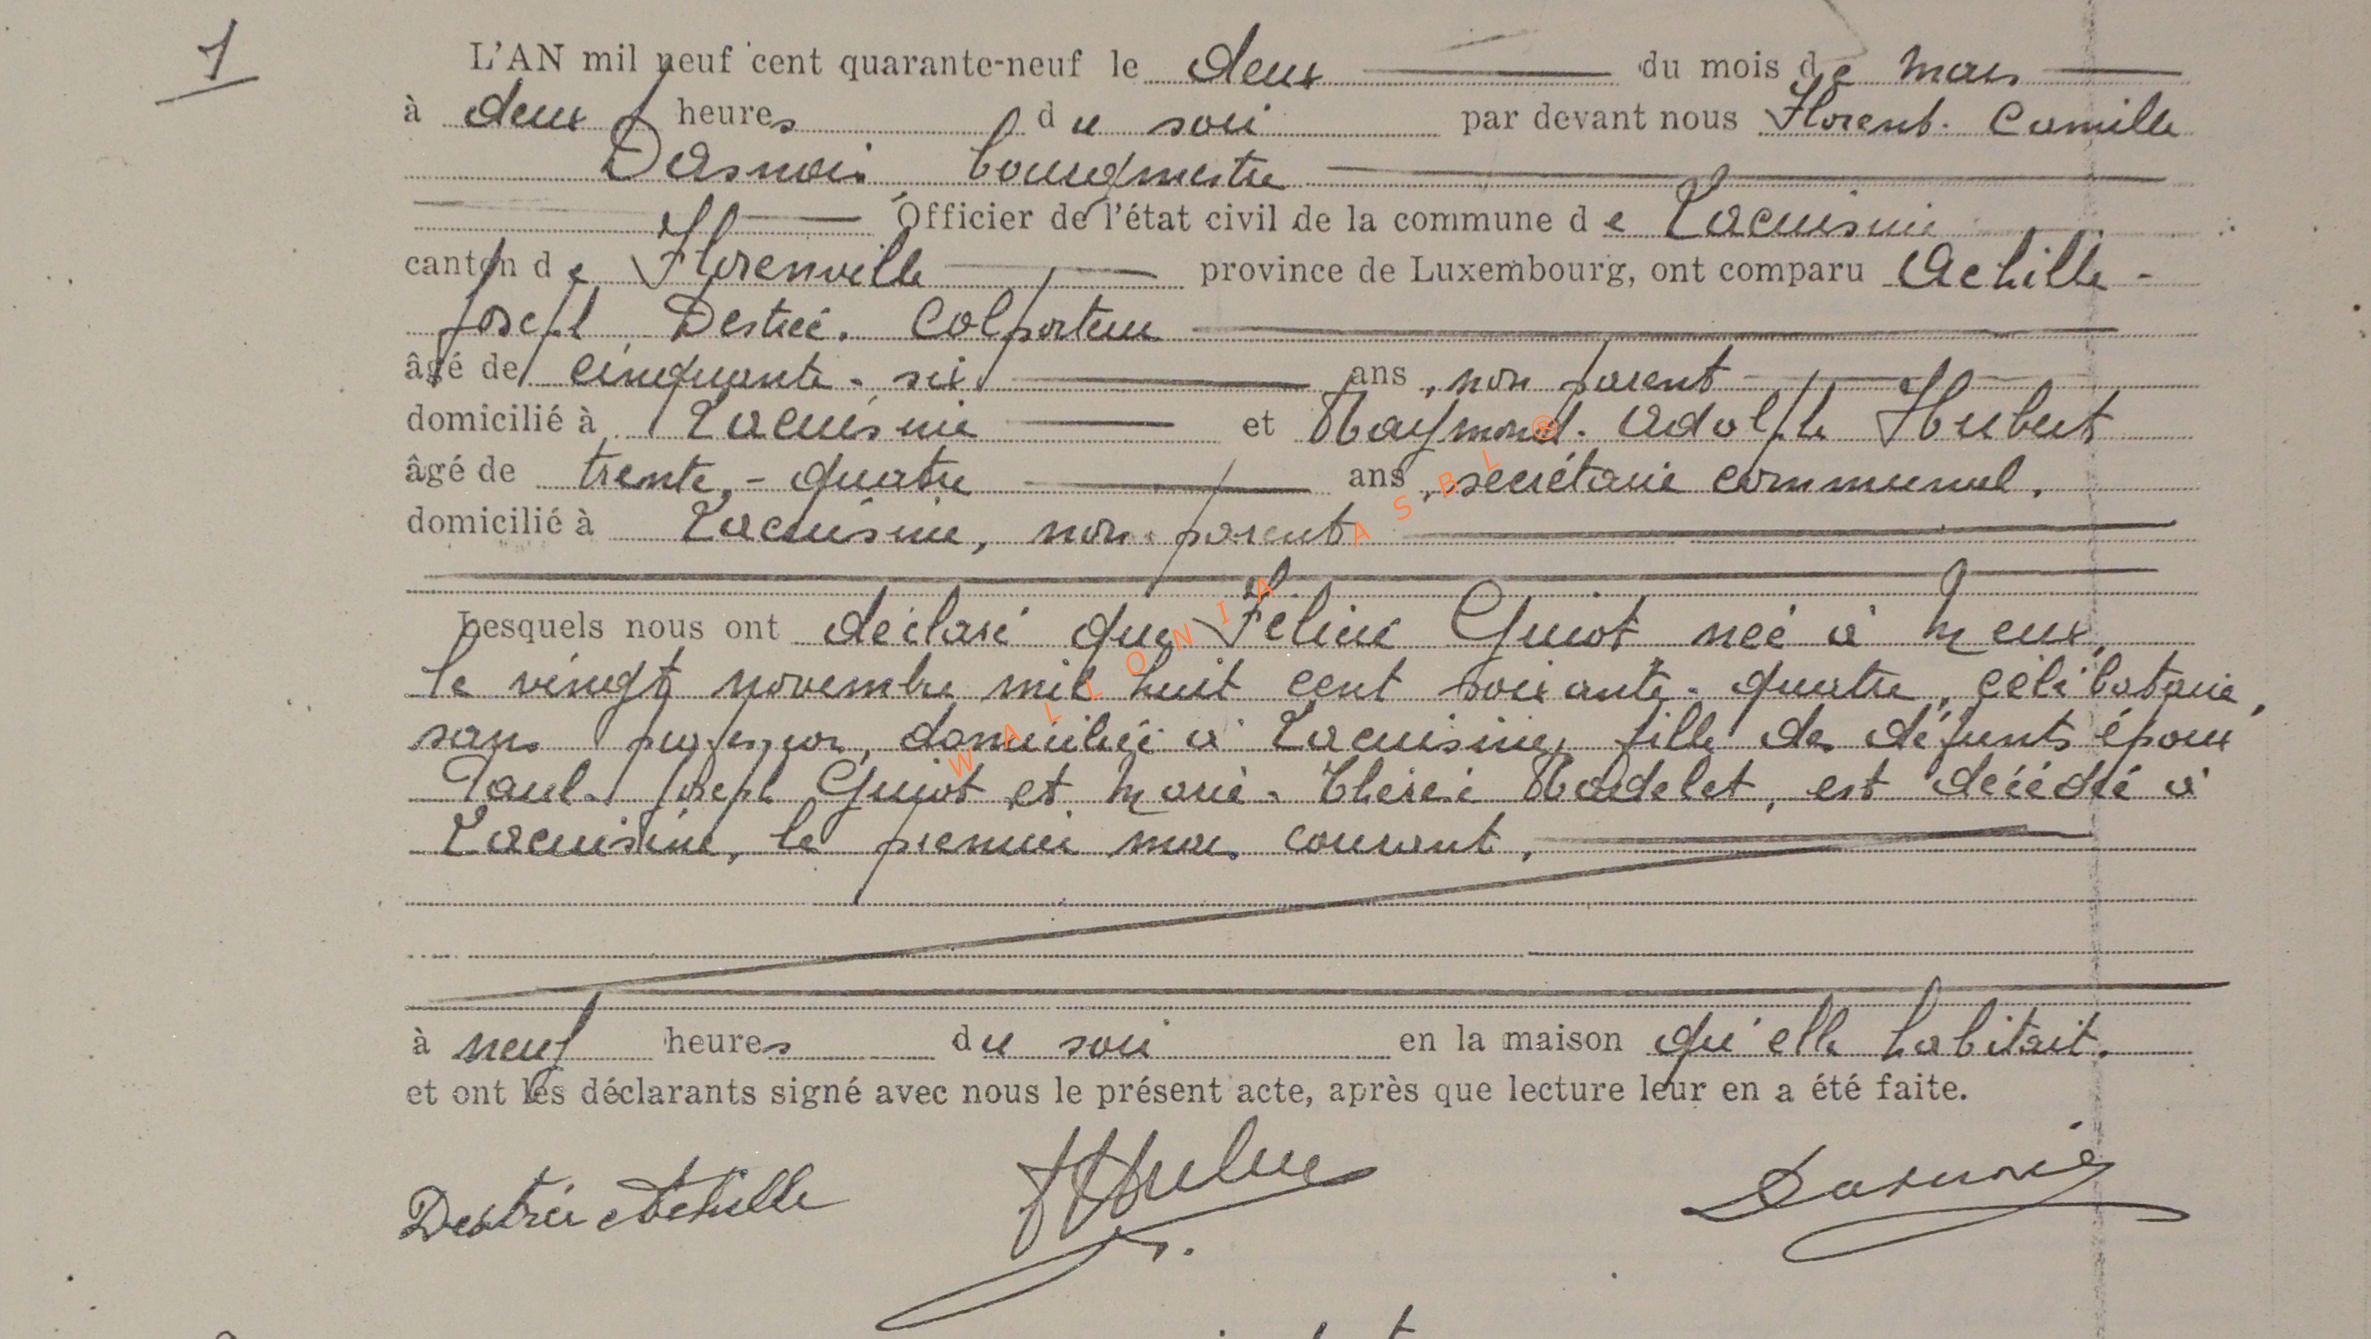 1
L'AN mil neuf cent quarante-neuf le deux du mois de mars
à deux heures du soir par devant nous Florent. Camille
Dasnois, bourgmestre
Officier de l'état civil de la commune de Lacuisine
canton de Florenville province de Luxembourg, ont comparu Achille-
Joseph Destrée. Colporteur
âgé de cinquante-six ans, non parent
domicilié à Lacuisine et Raymond. Adolphe Hubert
âgé de trente-quatre ans, secrétaire communal,
domicilié à Lacuisine, non parent
Lesquels nous ont déclaré que Félicie Guiot née à Meux,
le vingt novembre mil huit cent soixante-quatre, célibataire,
sans profession, domiciliée à Lacuisine, fille des défunts époux
Paul-Joseph Guiot et Marie-Thérèse Radelet, est décédée à
Lacuisine, le premier mars courant,
à neuf heures du soir en la maison qu'elle habitait.
et ont les déclarants signé avec nous le présent acte, après que lecture leur en a été faite.
Destrée Achille Dasnois
WALLONIA ASBL